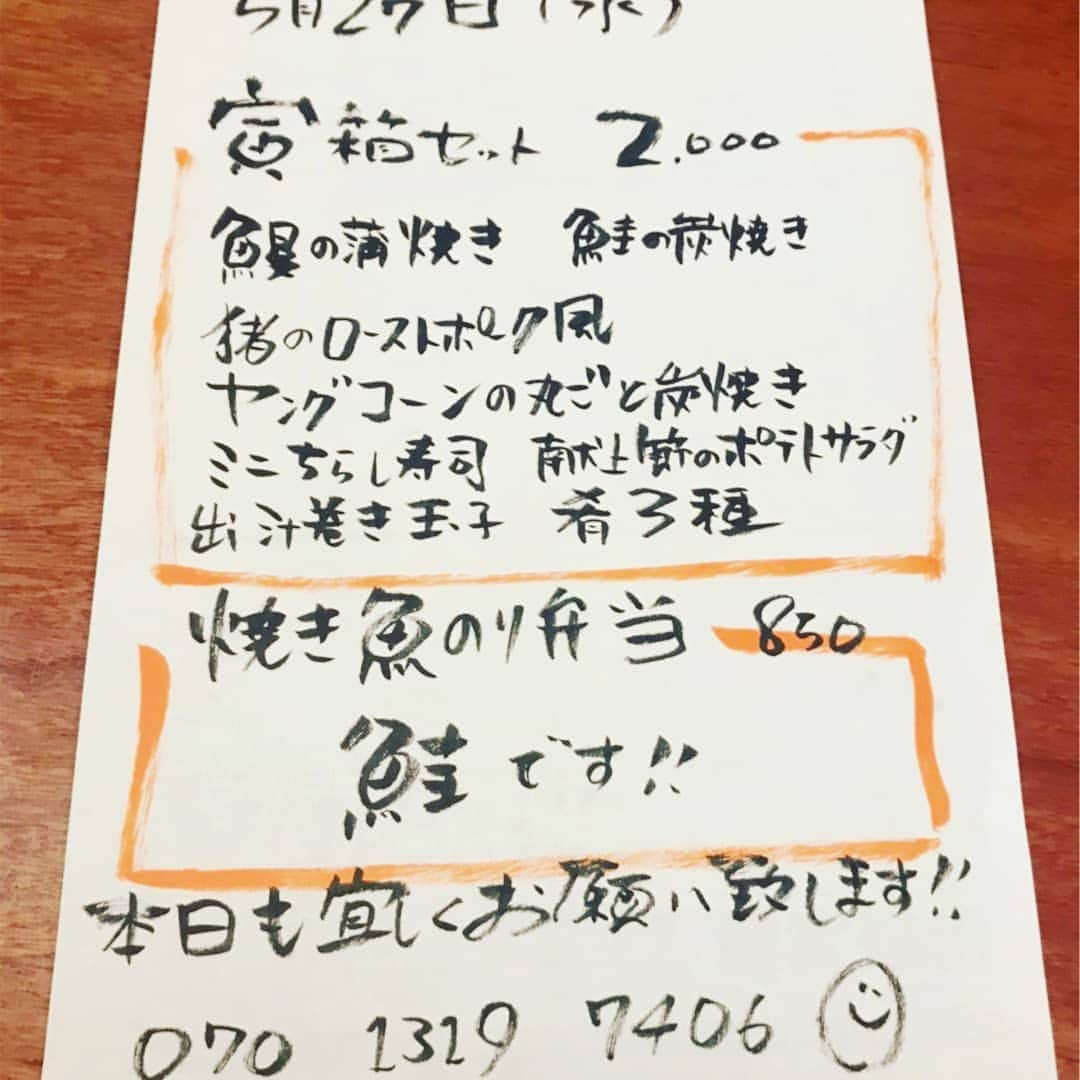 5月27日(水)
寅箱セット 2.000
鰻の蒲焼き 鮭の炭焼き
猪のローストポーク風
ヤングコーンの丸ごと炭焼き
ミニちらし寿司 献上節のポテトサラダ
出汁巻き玉子 肴3種
焼き魚のり弁当 850
鮭です!!
本日も宜しくお願い致します!!
070 1319 7406